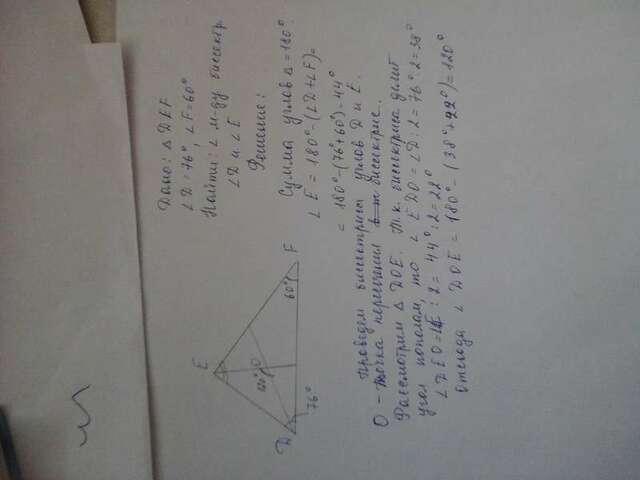 Дано: △ DEF
∠D = 76°, ∠F = 60°
Найти: ∠ м-ду биссектр.
∠D и ∠E
Решение:
Сумма углов △ = 180°.
∠E = 180° - (∠D + ∠F) =
= 180° - (76° + 60°) = 44°
E
120°
O
D
76°
60°
F
Проведем биссектрисы углов D и E.
O - точка пересечения биссектрис.
Рассмотрим △ DOE. Т.к. биссектриса делит
угол пополам, то ∠ EDO = ∠D : 2 = 76° : 2 = 38°
∠DEO = ∠E : 2 = 44° : 2 = 22°
Отсюда ∠ DOE = 180° - (38° + 22°) = 120°